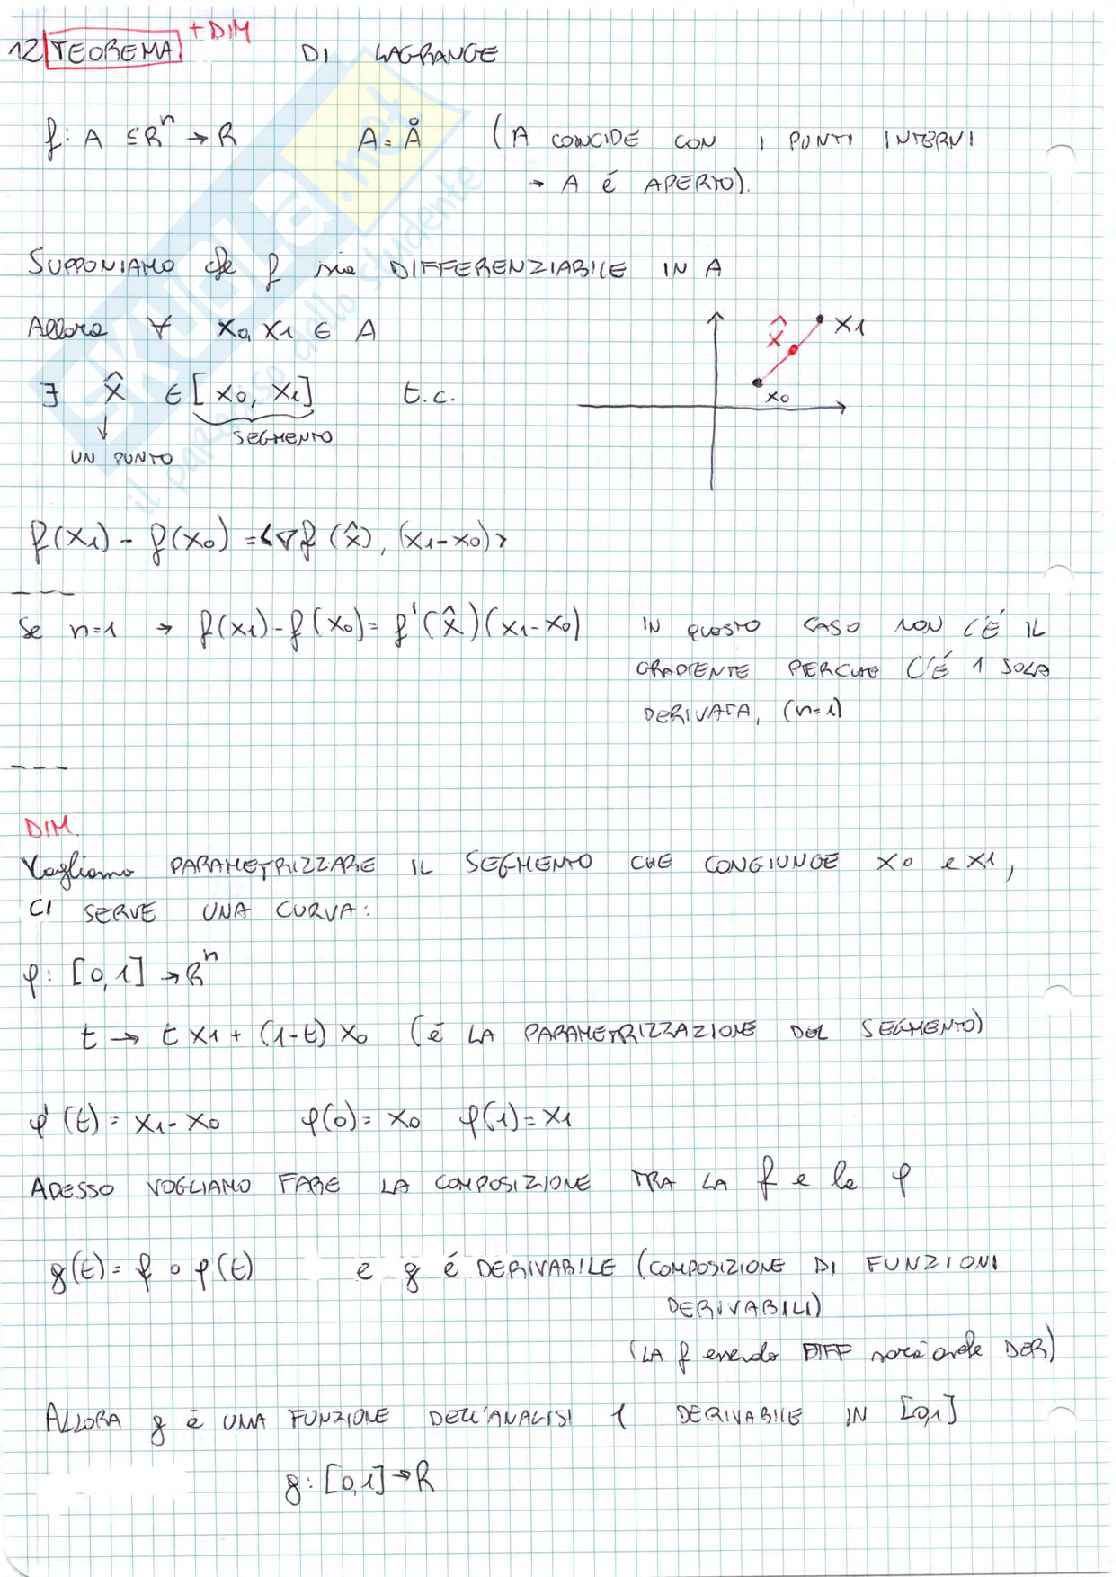 + DIM
12 TEOREMA DI LAGRANGE
f: A ⊆ R^n → R A = Å (A COINCIDE CON I PUNTI INTERNI
→ A é APERTO).
SUPPONIAMO che f sia DIFFERENZIABILE IN A
Allora ∀ x0, x1 ∈ A
∃ x̂ ∈ [x0, x1] t.c.
SEGMENTO
UN PUNTO
x̂ x1
x0
f(x1) - f(x0) = <∇f(x̂), (x1-x0)>
---
Se n=1 → f(x1) - f(x0) = f'(x̂)(x1-x0) IN QUESTO CASO NON C'É IL
GRADIENTE PERCHE C'É 1 SOLA
DERIVATA, (n=1)
---
DIM.
Vogliamo PARAMETRIZZARE IL SEGMENTO CHE CONGIUNGE x0 e x1,
CI SERVE UNA CURVA:
φ: [0,1] → R^n
t → t x1 + (1-t) x0 (é LA PARAMETRIZZAZIONE DEL SEGMENTO)
φ'(t) = x1 - x0 φ(0) = x0 φ(1) = x1
ADESSO VOGLIAMO FARE LA COMPOSIZIONE TRA LA f e la φ
g(t) = f ∘ φ(t) e g é DERIVABILE (COMPOSIZIONE DI FUNZIONI
DERIVABILI)
(LA f essendo DIFF sarà anche DER)
ALLORA g é UNA FUNZIONE DELL'ANALISI 1 DERIVABILE IN [0,1]
g: [0,1] → R
SKUOLA.net
il paradiso dello studente